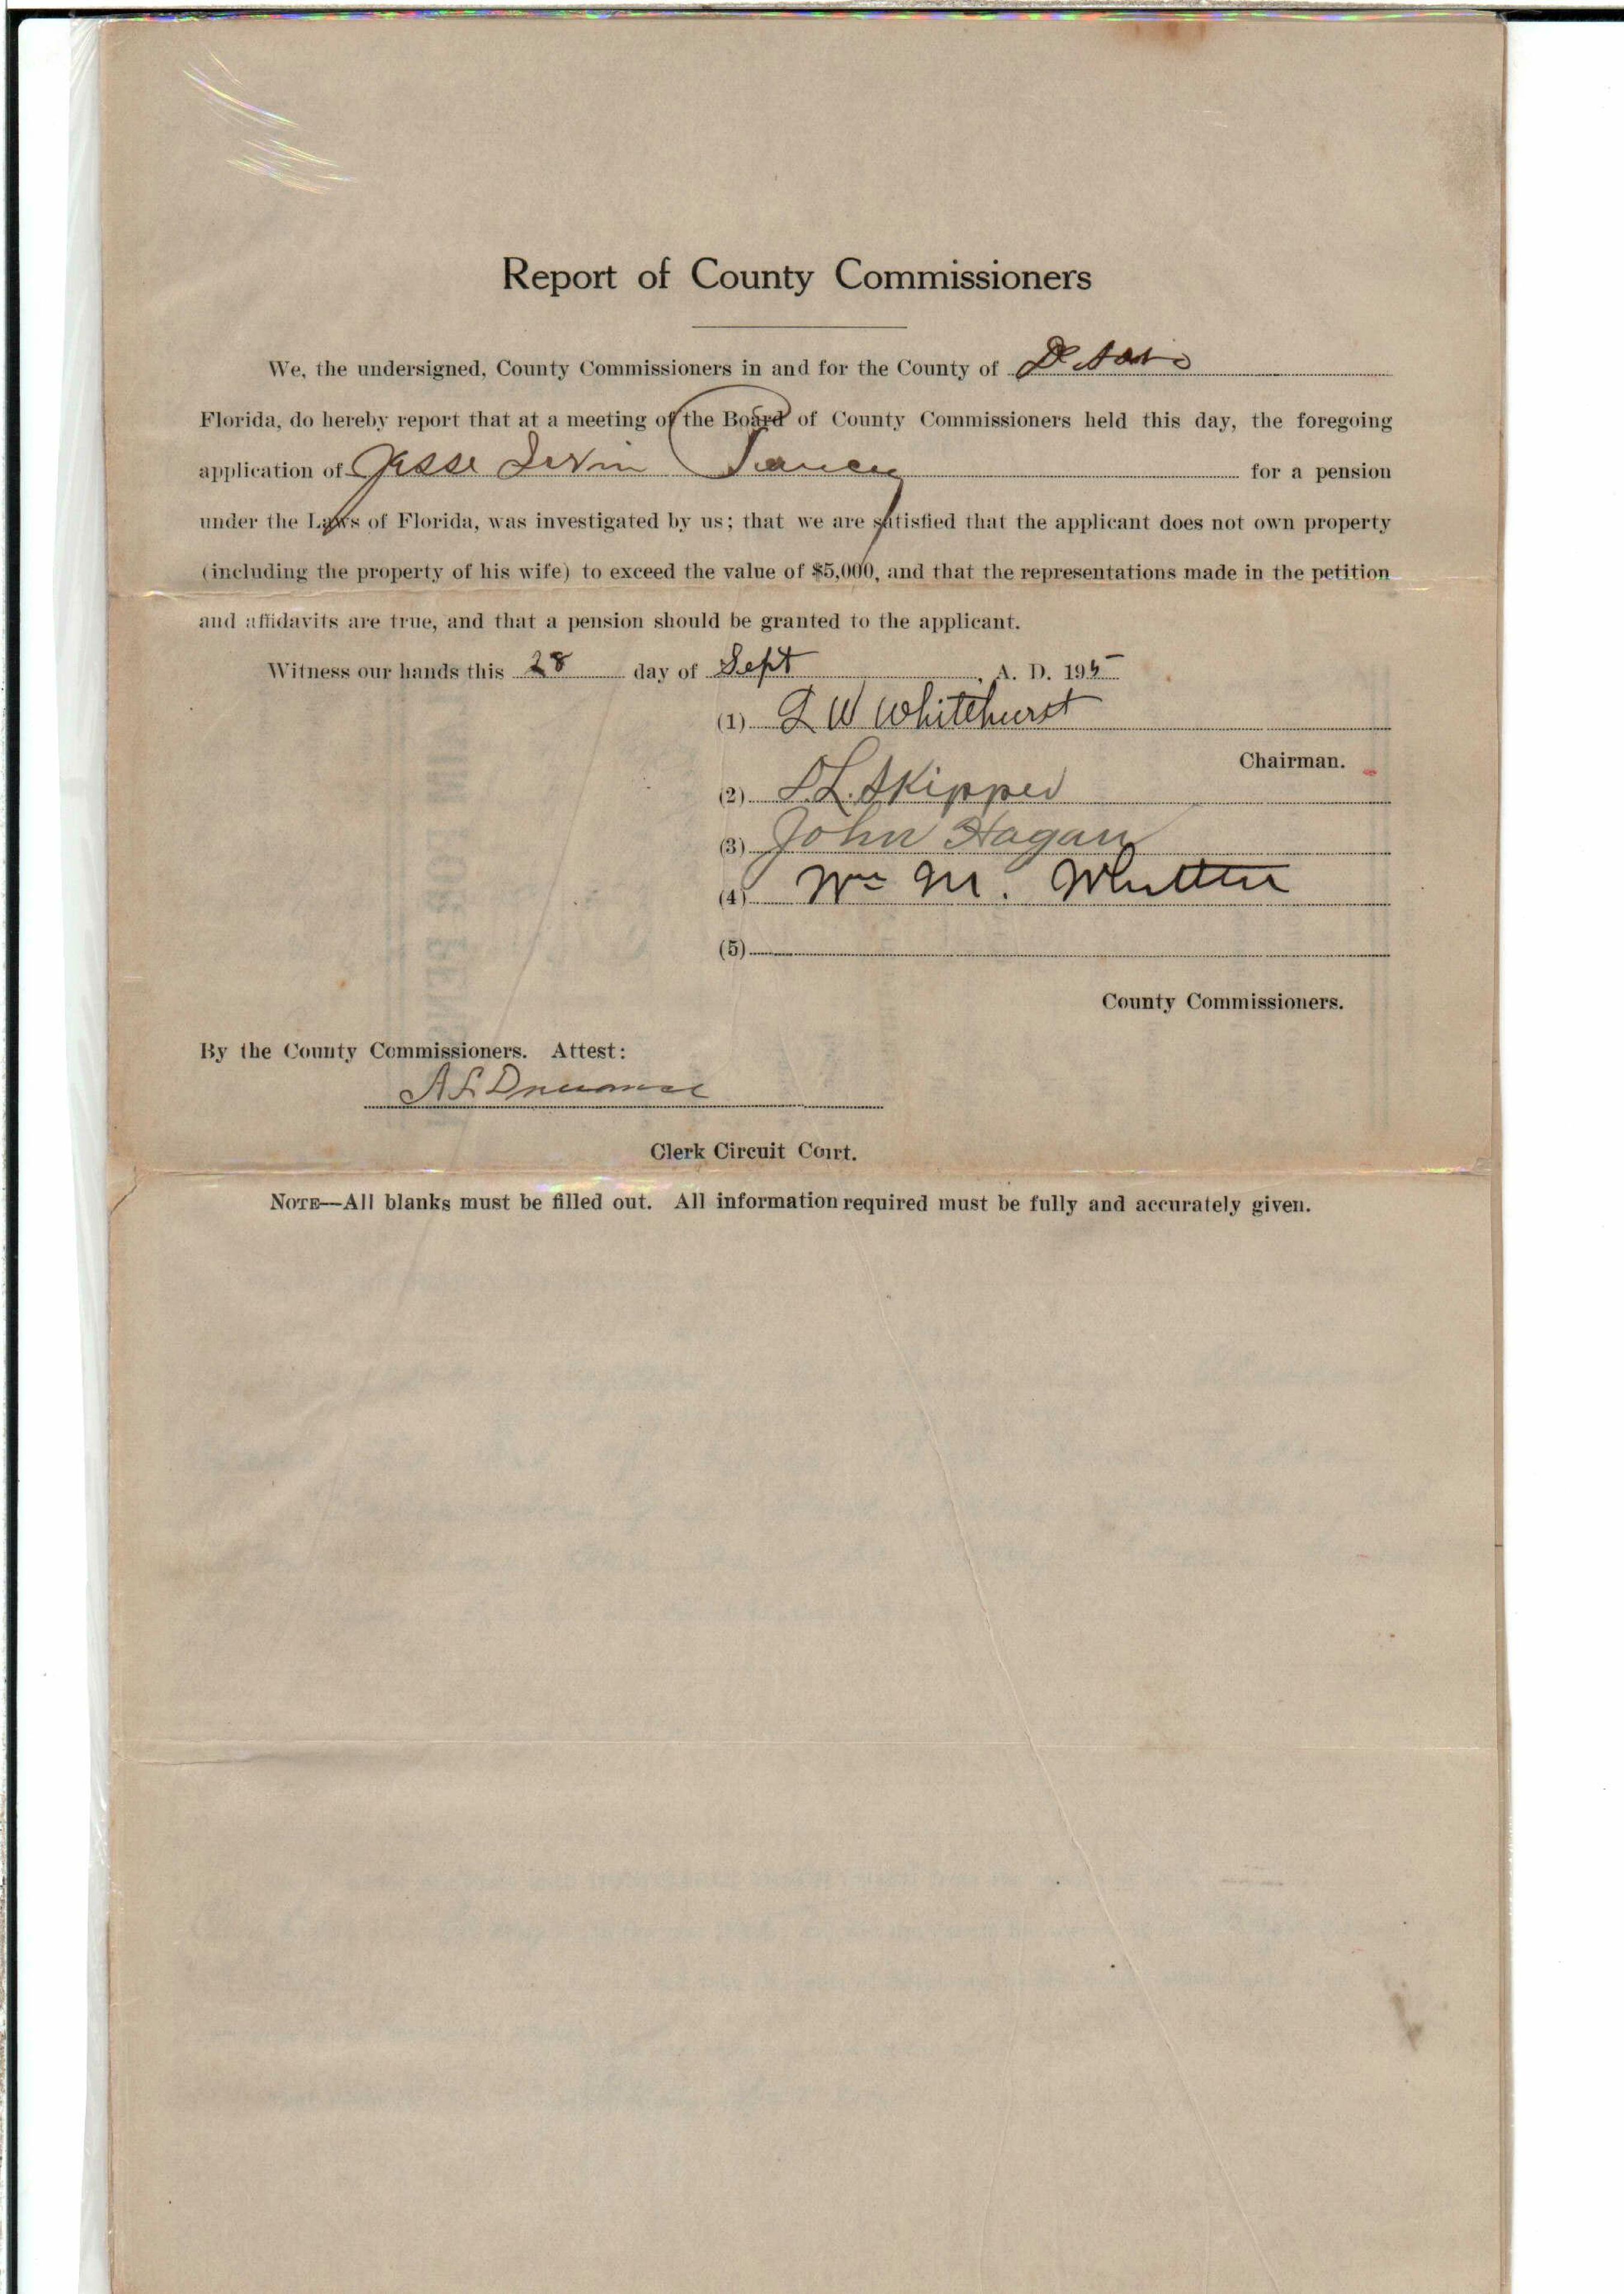 Report of County Commissioners
We, the undersigned, County Commissioners in and for the County of De Soto
Florida, do hereby report that at a meeting of the Board of County Commissioners held this day, the foregoing
application of Jesse for a pension
under the Laws of Florida, was investigated by us; that we are satisfied that the applicant does not own property
(including the property of his wife) to exceed the value of $5,000, and that the representations made in the petition
and affidavits are true, and that a pension should be granted to the applicant.
Witness our hands this 28 day of Sept , A. D. 19
(1) W Whitehurst
Chairman.
(2) L. Skipper
(3) John Hagan
(4) Wm M. Whitten
(5)
County Commissioners.
By the County Commissioners. Attest:
A L
Clerk Circuit Court.
NOTE—All blanks must be filled out. All information required must be fully and accurately given.